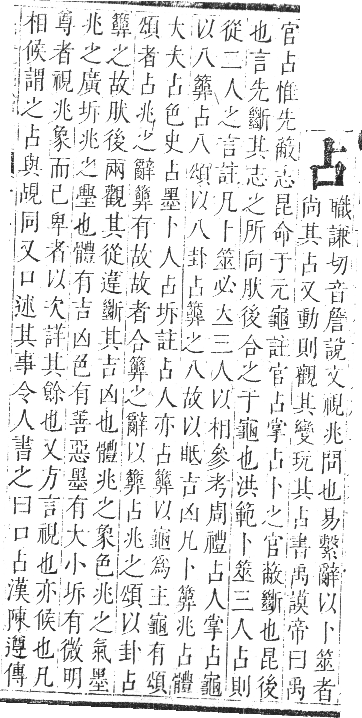 占
職謙切音詹說文視兆問也易繫辭以卜筮者
尚其占又動則觀其變玩其占書禹謨帝曰禹
官占惟先蔽志昆命于元龜註官占掌占卜之官蔽斷也昆後
也言先斷其志之所向肰後合之于龜也洪範卜筮三人占則
從二人之言註凡卜筮必立三人以相參考周禮占人掌占龜
以八簭占八頌以八卦占簭之八故以眡吉凶凡卜簭兆占體
大夫占色史占墨卜人占坼註占人亦占簭以龜爲主龜有頌
頌者占兆之辭簭有故故者合簭之辭以簭占兆之頌以卦占
簭之故肰後兩觀其從違斷其吉凶也體兆之象色兆之氣墨
兆之廣坼兆之舋也體有吉凶色有善惡墨有大小坼有微明
尊者視兆象而已卑者以次詳其餘也又方言視也亦候也凡
相候謂之占與覘同又口述其事令人書之曰口占漢陳遵傳